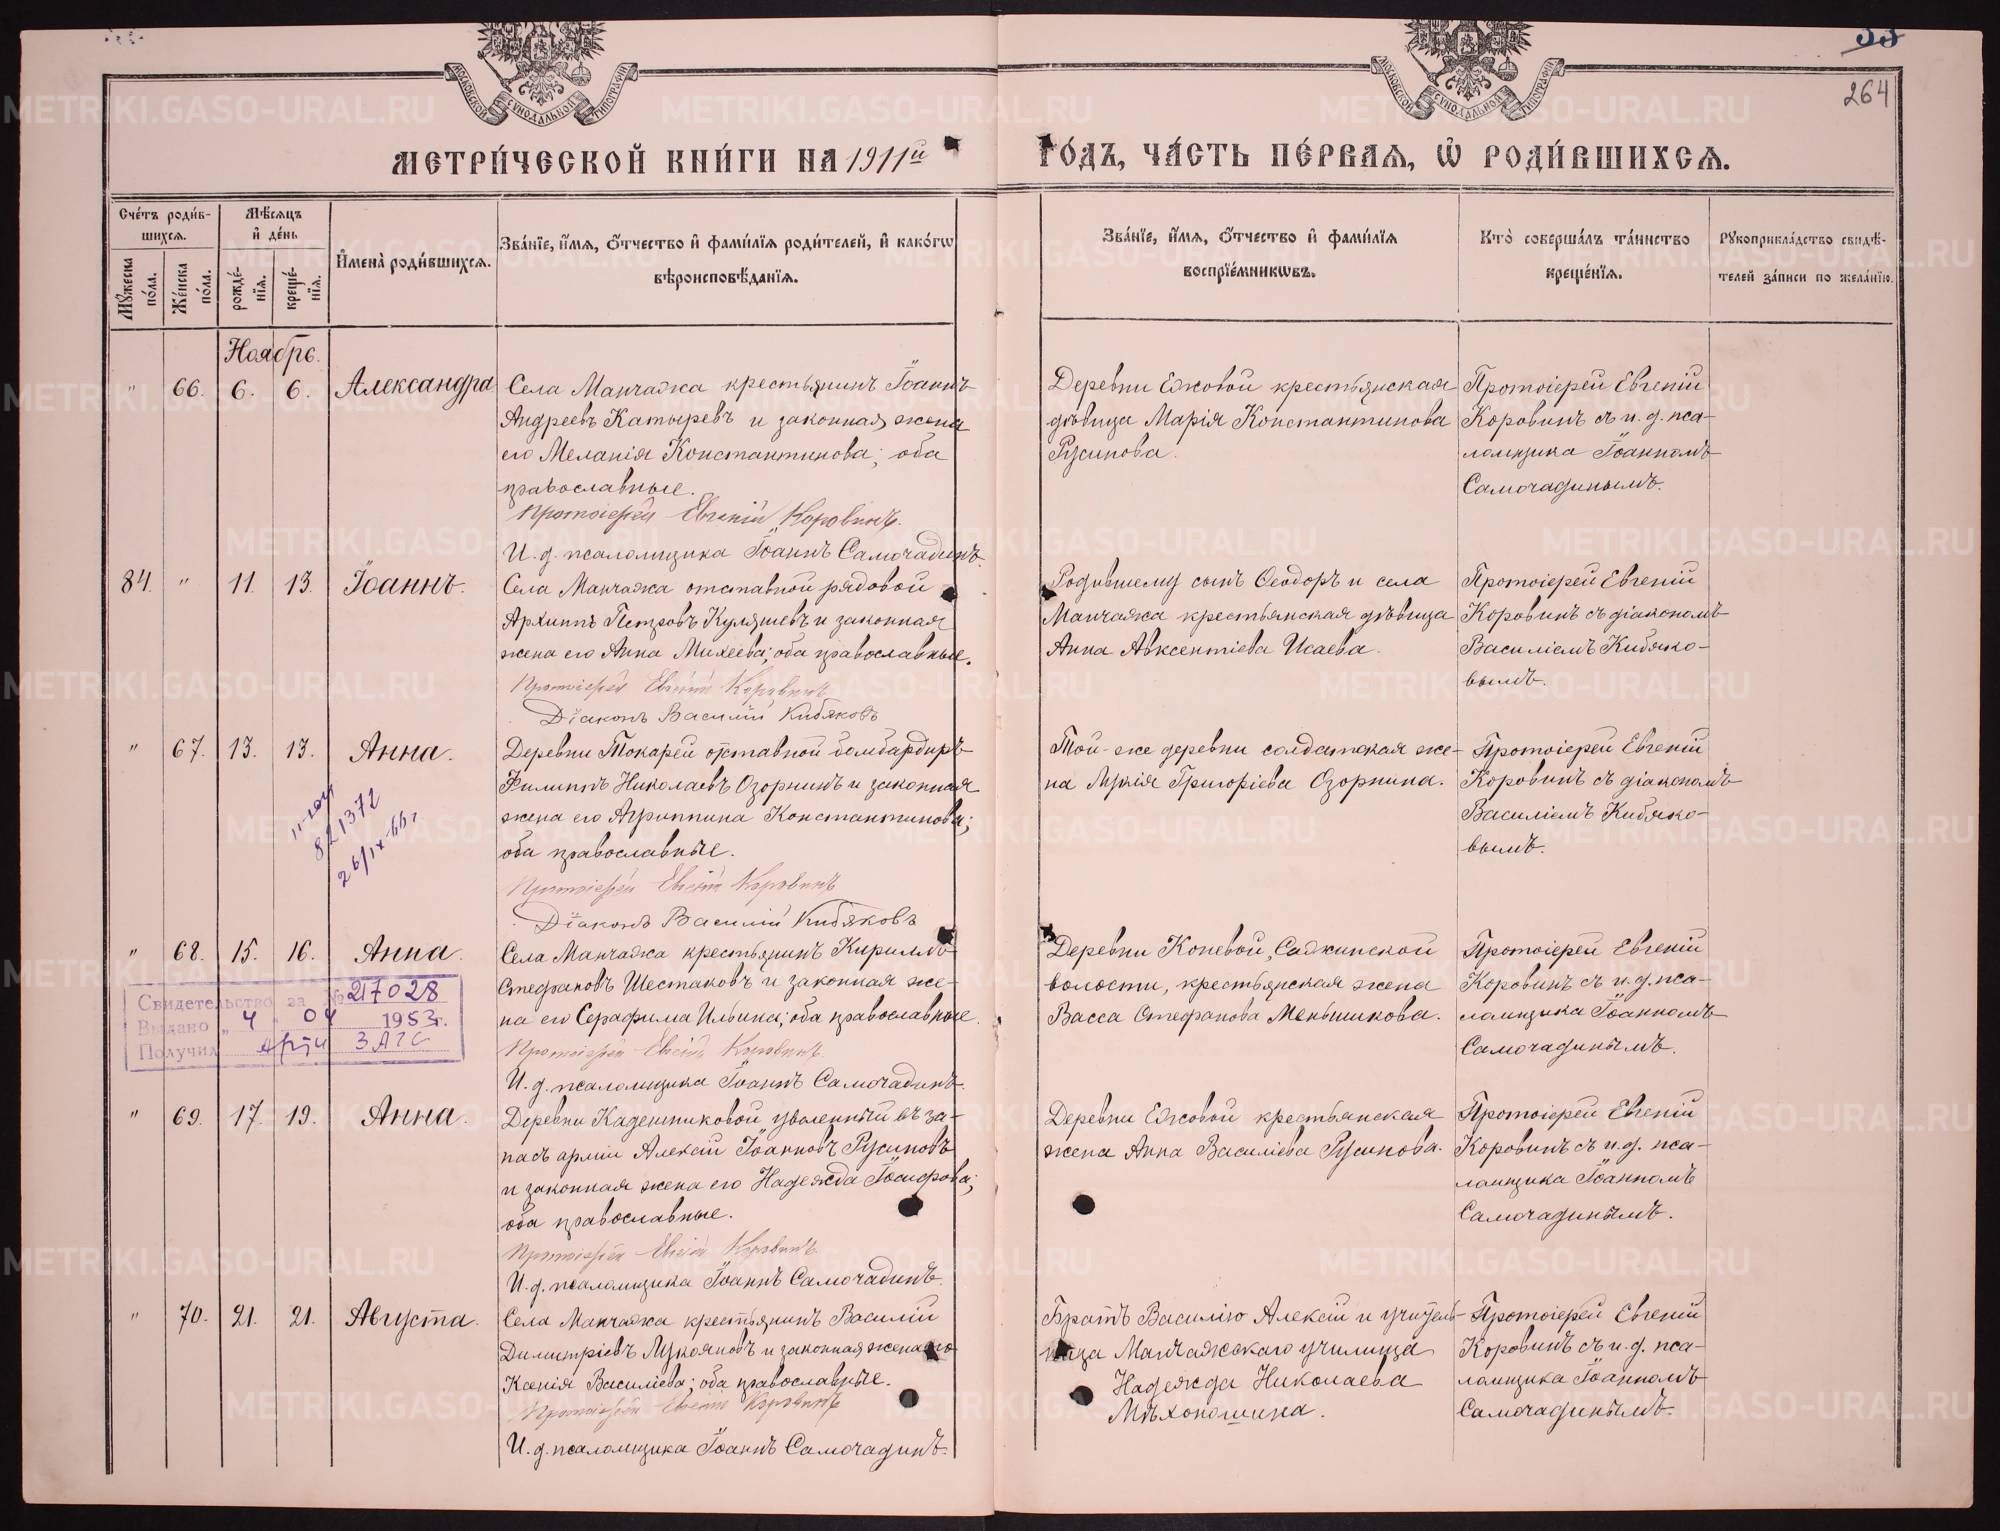 33
264
МОСКОВСКОЙ СѴНОДАЛЬНОЙ ТИПОГРАФІИ
МОСКОВСКОЙ СѴНОДАЛЬНОЙ ТИПОГРАФІИ
МЕТРИ́ЧЕСКОЙ КНИ́ГИ НА 1911й
ГО́ДЪ, ЧА́СТЬ ПЕ́РВАѦ, Ѡ҆ РОДИ́ВШИХСѦ.
Сче́тъ роди́в-
шихсѧ.
Мꙋ́жеска по́ла.
Же́нска по́ла.
Мѣ́сѧцъ
и҆ де́нь
рожде́-нїѧ.
креще́-нїѧ.
И҆мена̀ роди́вшихсѧ.
Зва́нїе, и҆́мѧ, ѻ҆́тчество и҆ фами́лїѧ роди́телей, и҆ како́гѡ
вѣроисповѣ́данїѧ.
Зва́нїе, и҆́мѧ, ѻ҆́тчество и҆ фами́лїѧ
воспрїе́мникѡвъ.
Кто̀ соверша́лъ та́инство
креще́нїѧ.
Рꙋкоприкла́дство свидѣ́-
телей за́писи по жела́нїю.
Ноябрь.
" 66. 6. 6. Александра
Села Манчажа крестьянинъ Іоаннъ
Андреевъ Катыревъ и законная жена
его Меланія Константинова; оба
православные.
Протоіерей Евгеній Коровинъ.
И. д. псаломщика Іоаннъ Самочадинъ.
Деревни Ежовой крестьянская
дѣвица Марія Константинова
Русинова.
Протоіерей Евгеній
Коровинъ съ и. д. пса-
ломщика Іоанномъ
Самочадинымъ.
84. " 11. 13. Іоаннъ.
Села Манчажа отставной рядовой
Архиппъ Петровъ Куляшевъ и законная
жена его Анна Михеева; оба православные.
Протоіерей Евгеній Коровинъ
Діаконъ Василій Кибяковъ
Родившему сынъ Ѳеодоръ и села
Манчажа крестьянская дѣвица
Анна Авксентіева Исаева.
Протоіерей Евгеній
Коровинъ съ діакономъ
Василіемъ Кибяко-
вымъ.
" 67. 13. 13. Анна.
821372
26/IX-66г.
Деревни Токарей отставной бомбардиръ
Филиппъ Николаевъ Озорнинъ и законная
жена его Агриппина Константинова;
оба православные.
Протоіерей Евгеній Коровинъ
Діаконъ Василій Кибяковъ
Той-же деревни солдатская же-
на Лукія Григоріева Озорнина.
Протоіерей Евгеній
Коровинъ съ діакономъ
Василіемъ Кибяко-
вымъ.
" 68. 15. 16. Анна.
Свидетельство за №217028
Выдано " 4 " 04 1953г.
Получил Арти ЗАГС
Села Манчажа крестьянинъ Кириллъ
Стефановъ Шестаковъ и законная же-
на его Серафима Ильина; оба православные.
Протоіерей Евгеній Коровинъ.
И. д. псаломщика Іоаннъ Самочадинъ.
Деревни Коневой, Сажинской
волости, крестьянская жена
Васса Стефанова Меньшикова.
Протоіерей Евгеній
Коровинъ съ и. д. пса-
ломщика Іоанномъ
Самочадинымъ.
" 69. 17. 19. Анна.
Деревни Кадешниковой уволенный въ за-
пасъ арміи Алексій Іоанновъ Русиновъ
и законная жена его Надежда Іосифова;
оба православные.
Протоіерей Евгеній Коровинъ
И. д. псаломщика Іоаннъ Самочадинъ.
Деревни Ежовой крестьянская
жена Анна Василіева Русинова.
Протоіерей Евгеній
Коровинъ съ и. д. пса-
ломщика Іоанномъ
Самочадинымъ.
" 70. 21. 21. Августа.
Села Манчажа крестьянинъ Василій
Димитріевъ Лукояновъ и законная жена его
Ксенія Василіева; оба православные.
Протоіерей Евгеній Коровинъ
И. д. псаломщика Іоаннъ Самочадинъ.
Братъ Василію Алексій и учитель-
ница Манчажскаго училища
Надежда Николаева
Мѣхоношина.
Протоіерей Евгеній
Коровинъ съ и. д. пса-
ломщика Іоанномъ
Самочадинымъ.
METRIKI.GASO-URAL.RU